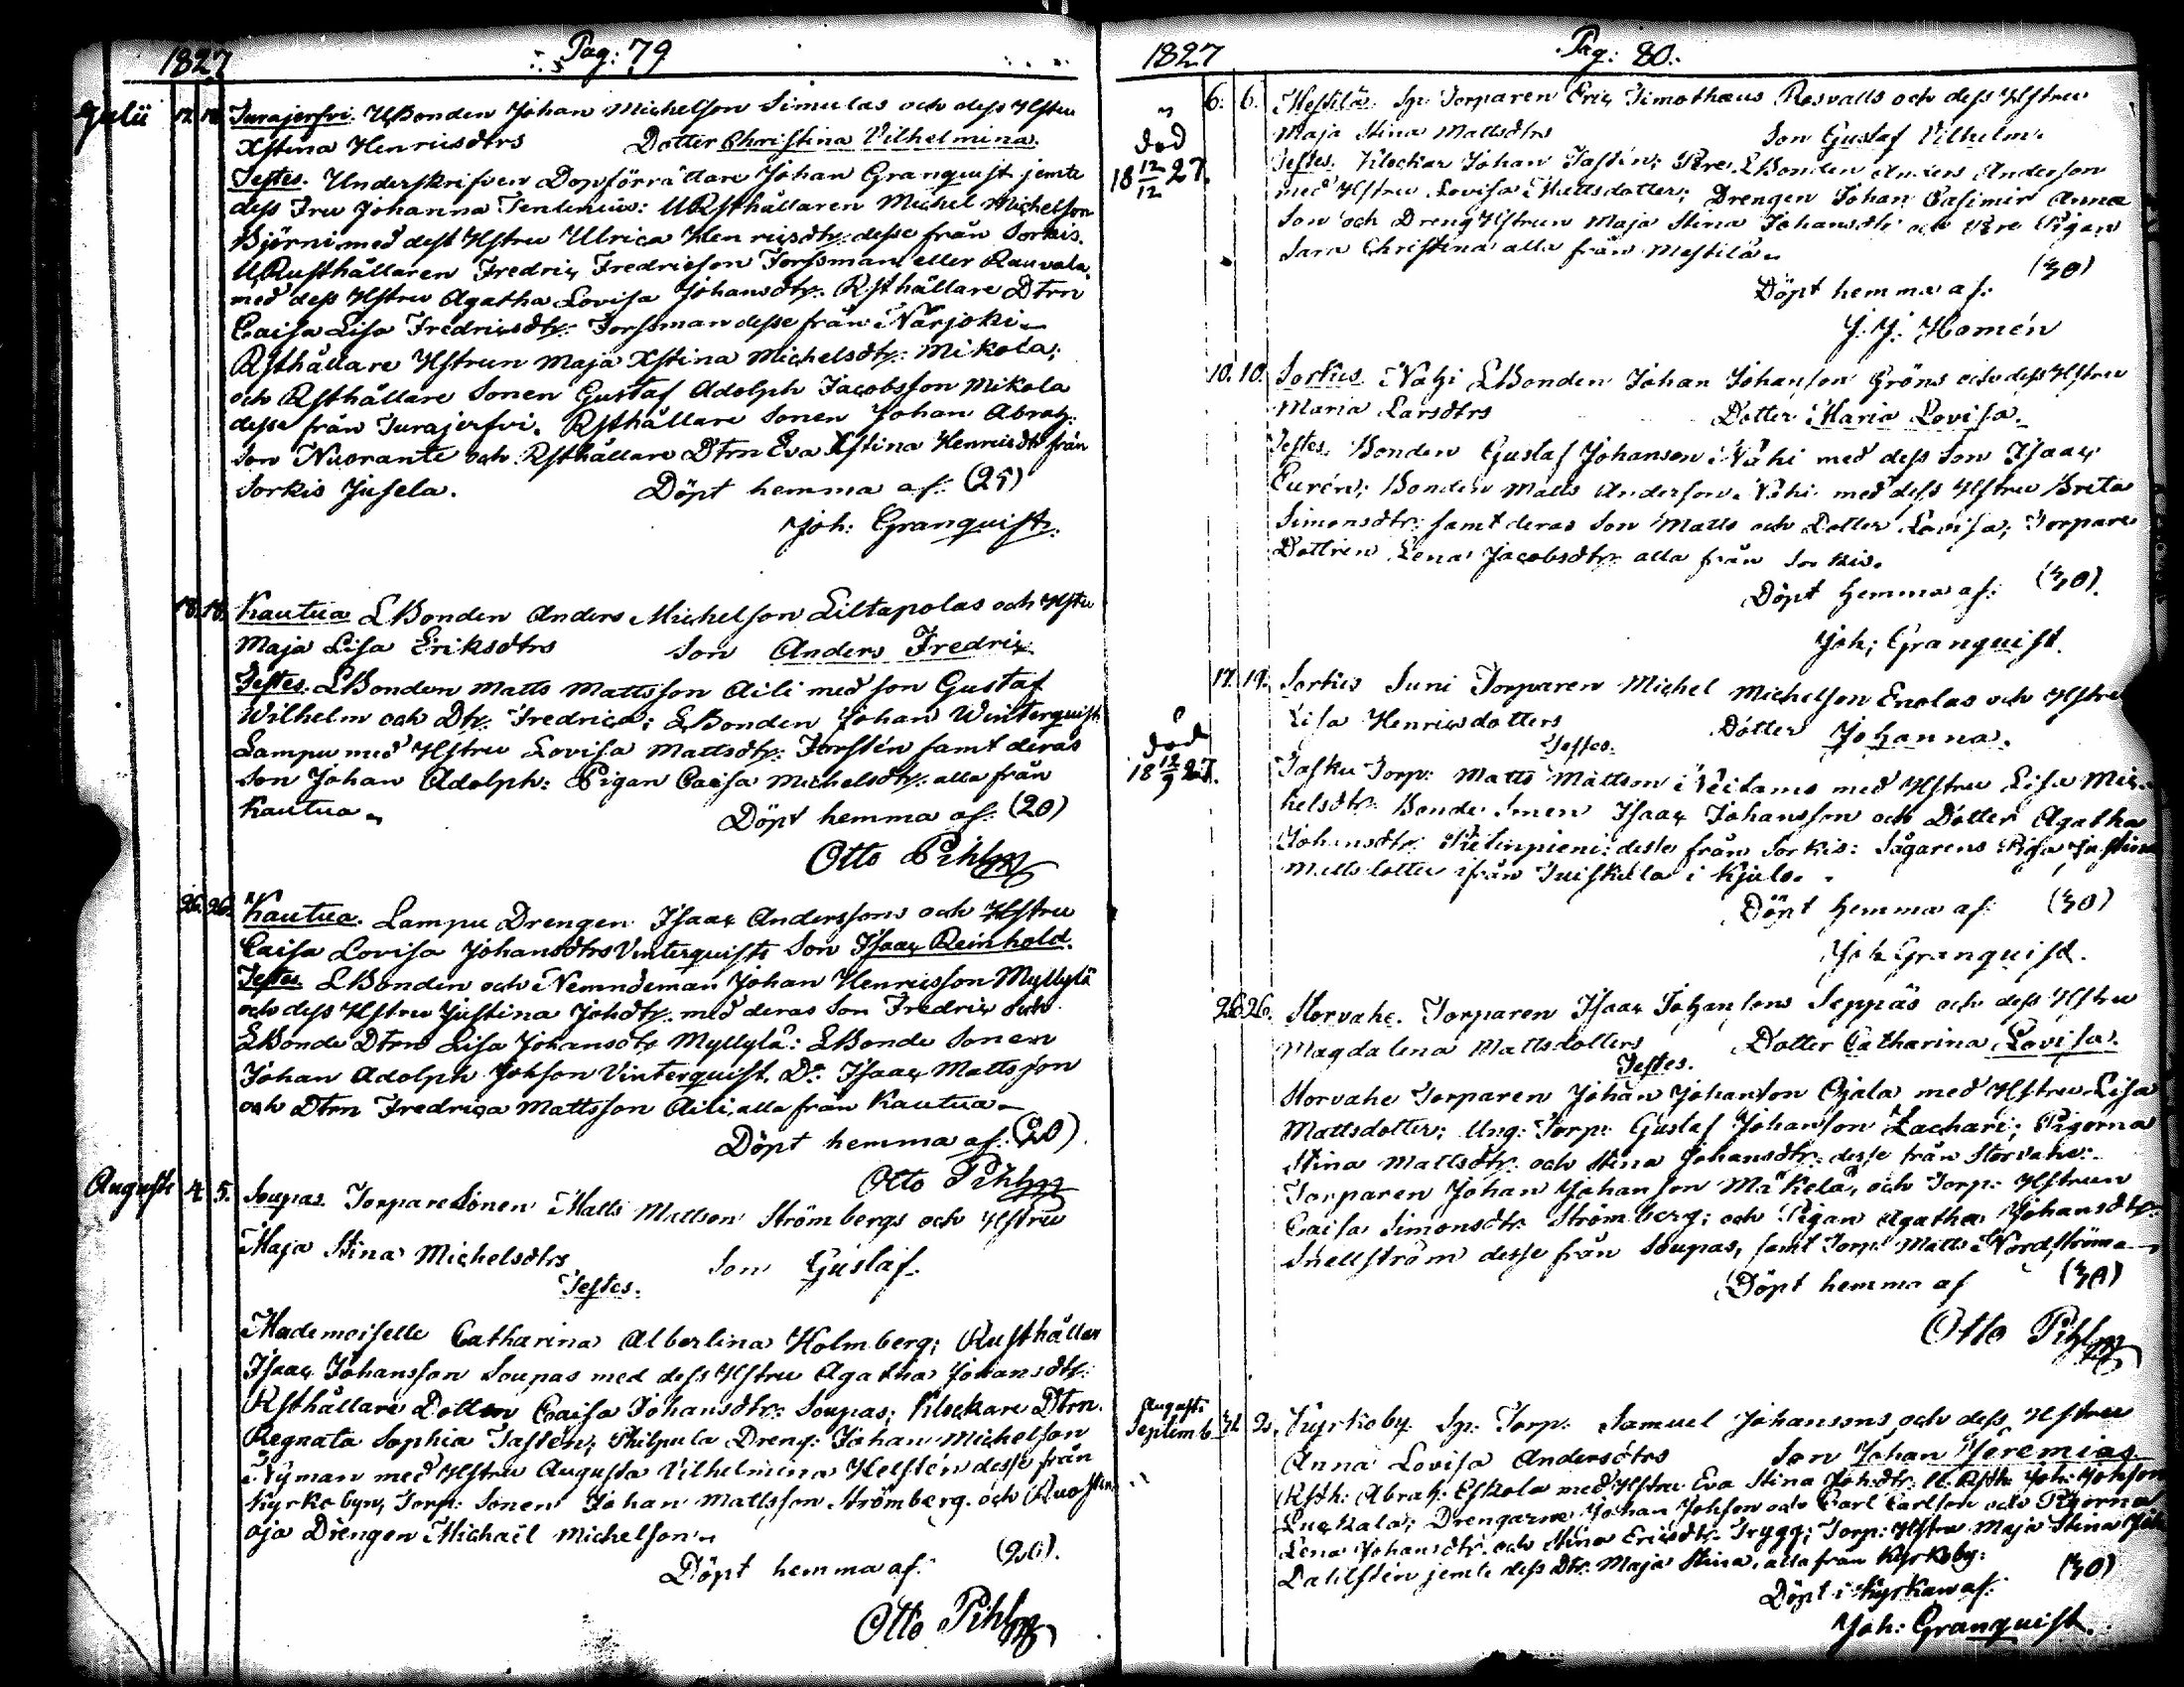 1827 Pag: 79
Julii 17. 18. Turajerfvi. UBonden Johan Michelson Simulas och dess Hstru
Xstina Henricsdtrs Dotter Christina Vilhelmina.
Testes. Underskrifven Dopförrättare Johan Granquist jemte
dess Fru Johanna Tenlenius: URsthållaren Michel Michelson
Björni med dess Hstru Ulrica Henricsdtr. desse från Sorkis.
URusthållaren Fredric Fredricson Forssman eller Rauvola
med dess Hstru Agatha Lovisa Johansdtr. Rsthållare Dtrn
Caisa Lisa Fredricsdtr. Forssman desse från Närjoki
Rsthållare Hstrun Maja Xstina Michelsdtr: Mikola;
och Rsthållare Sonen Gustaf Adolph Jacobsson Mikola
desse från Turajerfvi. Rsthållare Sonen Johan Abrah:
son Nuorante och Rsthållare Dtrn Eva Xstina Henricsdtr från
Sorkis Jusela. Döpt hemma af: (25)
Joh: Granquist.
18. 18. Kautua LBonden Anders Michelson Liltapolas och Hstru
Maja Lisa Eriksdtrs Son Anders Fredric.
Testes. LBonden Matts Mattsson Aili med son Gustaf
Wilhelm och Dtr. Fredrica; LBonden Johan Winterquist
Lampu med Hstru Lovisa Mattsdtr: Torstén samt deras
Son Johan Adolph: Pigan Caisa Michelsdtr. alla från
Kautua. Döpt hemma af: (20)
Otto Pihlman
26. 26. Kautua. Lampu Drengen Isaac Anderssons och Hstru
Caisa Lovisa Johansdtrs Vinterquists Son Isaac Reinhold.
Testes. LBonden och Nemndeman Johan Henricsson Myllylä
och dess Hstru Justina Johdtr. med deras Son Fredric och
LBonde Dtrn Lisa Johansdtr Myllylä: LBonde Sonen
Johan Adolph Johson Vinterquist. Do. Isaac Mattsson
och Dtrn Fredrica Mattsson Aili, alla från Kautua
Döpt hemma af: (20).
Otto Pihlman
Augusti 4. 5. Soupas. Torpare Sonen Matts Mattson Strömbergs och Hstru
Maja Stina Michelsdtrs Son Gustaf.
Testes.
Mademoiselle Catharina Albertina Holmberg; Rusthållar
Isaac Johansson Soupas med dess Hstru Agatha Johansdtr:
Rsthållare Dottern Caisa Johansdtr: Soupas; Klockare Dtrn.
Regnata Sophia Tastén; Philpula Dreng: Johan Michelson
Nyman med Hstru Augusta Vilhelmina Helstén desse från
Kyrkobyn, Torp: Sonen Johan Mattsson Strömberg. och Ruostin
oja Drengen Michaël Michelson
Döpt hemma af: (20).
Otto Pihlman
1827 Pag: 80.
6. 6. Hestilä. Sp: Torparen Eric Timothæus Rosvalls och dess Hstru
Maja Stina Mattsdtrs Son Gustaf Vilhelm.
död 18 12/12 27.
Testes. Klockar Johan Tastén; LBonden Anders Anderson
med Hstru Lovisa Mattsdotter; Drengen Johan Casimir Anna
son och Dreng Hstrun Maja Stina Johansdtr och Pigan
Sara Christina alla från Mestilä.
Döpt hemma af: (30)
J. J. Homén
10. 10. Sorkis Nahi LBonden Johan Johanson Gröns och dess Hstru
Maria Larsdtrs Dotter Maria Lovisa.
Testes. Bonden Gustaf Johanson Nahi med dess Son Isaac
Eurén; Bonden Matts Anderson Nahi med dess Hstru Brita
Simonsdtr: samt deras Son Matts och Dotter Lovisa; Torpare
Dottren Lena Jacobsdtr alla från Sorkis.
Döpt hemma af: (30).
Joh; Granquist.
17. 19. Sorkis Juni Torparen Michel Michelson Enolas och Hstru
Lisa Henricsdotters Dotter Johanna.
död 18 12/9 27.
Testes.
Tasku Torp: Matts Mattson Neitamo med Hstru Lisa Mic-
helsdtr: Bonde Sonen Isaac Johansson och Dotter Agatha
Johansdtr: desse från Sorkis: Sågarens Justina
Mattsdotter ifrån Tuiskula i Kjulo.
Döpt hemma af: (30)
Joh Granquist.
26. 26. Storvahe. Torparen Isaac Johansons Seppäs och dess Hstru
Magdalena Mattsdotters Dotter Catharina Lovisa.
Testes.
Storvahe Torparen Johan Johanson Ojala med Hstru Lisa
Mattsdotter; Ung: Torp: Gustaf Johanson Lachari; Pigorna
Stina Mattsdtr. och Stina Johansdtr: desse från Storvahe:
Torparen Johan Johanson Mäkelä, och Torp: Hstrun
Caisa Simonsdtr Strömberg; och Pigan Agatha Johansdtr:
Snellström desse från Soupas, samt Torp: Matts Nordström
Döpt hemma af (30)
Otto Pihlman
Augusti
Septemb. 31. 2. Kyrkoby. Sp: Torp: Samuel Johansons och dess Hstru
Anna Lovisa Andersdtrs Son Johan Jeremias
Rsth: Abrah: Eskola med Hstru Eva Stina Johdtr: U.Rsth: Joh: Johson
Luckala; Drengarne Johan Johson och Carl Carlson och Pigorna
Lena Johansdtr. och Stina Ericsdtr. Trygg; Torp: Hstru Maja Stina Joh
Dahlstén jemte dess Dtr. Maja Stina, alla från Kyrkoby:
Döpt i Kyrkan af: (30)
Joh: Granquist.